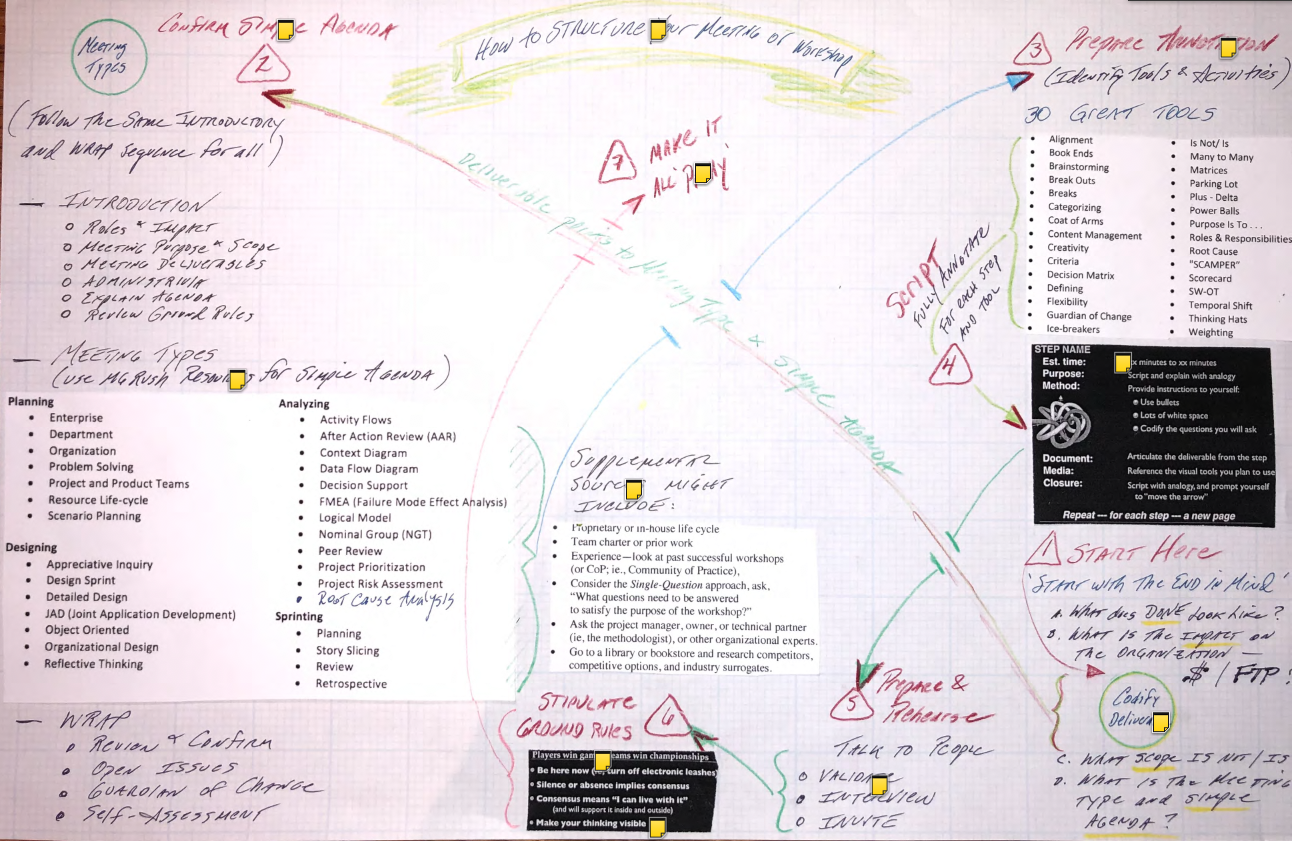 How to STRUCTURE your Meeting or Workshop
MEETING
TYPES
CONFIRM SIMPLE AGENDA
2
(Follow the Same INTRODUCTORY
and WRAP sequence for all)
— INTRODUCTION
Roles & Impact
Meeting Purpose & Scope
Meeting Deliverables
ADMINISTRIVIA
EXPLAIN AGENDA
Review Ground Rules
— MEETING TYPES
(use MGRUSH Resources for Simple Agenda)
Planning
• Enterprise
• Department
• Organization
• Problem Solving
• Project and Product Teams
• Resource Life-cycle
• Scenario Planning
Designing
• Appreciative Inquiry
• Design Sprint
• Detailed Design
• JAD (Joint Application Development)
• Object Oriented
• Organizational Design
• Reflective Thinking
Analyzing
• Activity Flows
• After Action Review (AAR)
• Context Diagram
• Data Flow Diagram
• Decision Support
• FMEA (Failure Mode Effect Analysis)
• Logical Model
• Nominal Group (NGT)
• Peer Review
• Project Prioritization
• Project Risk Assessment
• Root Cause Analysis
Sprinting
• Planning
• Story Slicing
• Review
• Retrospective
— WRAP
Review & Confirm
Open Issues
Guardian of Change
Self-Assessment
Deliverable points to Meeting Type & Simple AGENDA
7
MAKE IT
ALL
3
Prepare
(Identify Tools & Activities)
30 GREAT TOOLS
• Alignment
• Book Ends
• Brainstorming
• Break Outs
• Breaks
• Categorizing
• Coat of Arms
• Content Management
• Creativity
• Criteria
• Decision Matrix
• Defining
• Flexibility
• Guardian of Change
• Ice-breakers
• Is Not/ Is
• Many to Many
• Matrices
• Parking Lot
• Plus - Delta
• Power Balls
• Purpose Is To . . .
• Roles & Responsibilities
• Root Cause
• "SCAMPER"
• Scorecard
• SW-OT
• Temporal Shift
• Thinking Hats
• Weighting
SCRIPT
FULLY ANNOTATE
FOR EACH STEP
AND TOOL
4
STEP NAME
Est. time: x minutes to xx minutes
Purpose: Script and explain with analogy
Method: Provide instructions to yourself:
● Use bullets
● Lots of white space
● Codify the questions you will ask
Document: Articulate the deliverable from the step
Media: Reference the visual tools you plan to use
Closure: Script with analogy, and prompt yourself
to "move the arrow"
Repeat --- for each step --- a new page
1
START Here
'START with the END in Mind'
A. WHAT does DONE Look Like?
B. WHAT IS the IMPACT on
the ORGANIZATION —
$ / FTP ?
Codify
C. WHAT SCOPE IS NOT / IS
D. WHAT IS the MEETING
TYPE and SIMPLE
AGENDA ?
Supplemental
Source MIGHT
INCLUDE:
• Proprietary or in-house life cycle
• Team charter or prior work
• Experience—look at past successful workshops
(or CoP; ie., Community of Practice),
• Consider the Single-Question approach, ask,
“What questions need to be answered
to satisfy the purpose of the workshop?”
• Ask the project manager, owner, or technical partner
(ie, the methodologist), or other organizational experts.
• Go to a library or bookstore and research competitors,
competitive options, and industry surrogates.
5
Prepare &
Rehearse
TALK TO PEOPLE
VALIDATE
INTERVIEW
INVITE
STIPULATE
GROUND RULES
6
Players win games teams win championships
• Be here now turn off electronic leashes
• Silence or absence implies consensus
• Consensus means “I can live with it”
(and will support it inside and outside)
• Make your thinking visible